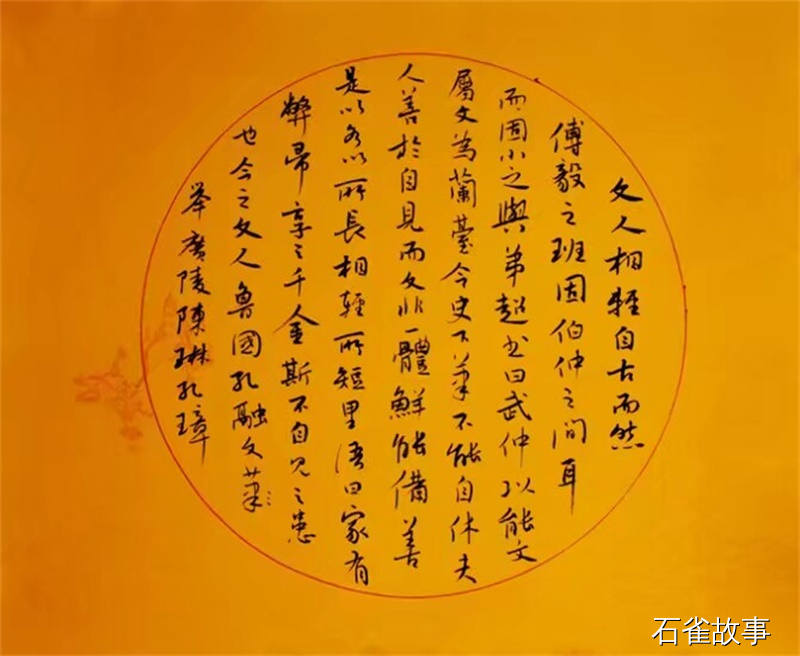 文人相輕自古而然
傅毅之班固伯仲之間耳
而固小之與弟超书曰武仲以能文
屬文為蘭臺令史下筆不能自休夫
人善於自見而文非一體鮮能備善
是以各以所長相輕所短里語曰家有
弊帚享之千金斯不自见之患
也今之文人魯國孔融文
举廣陵陳琳孔璋
石雀故事